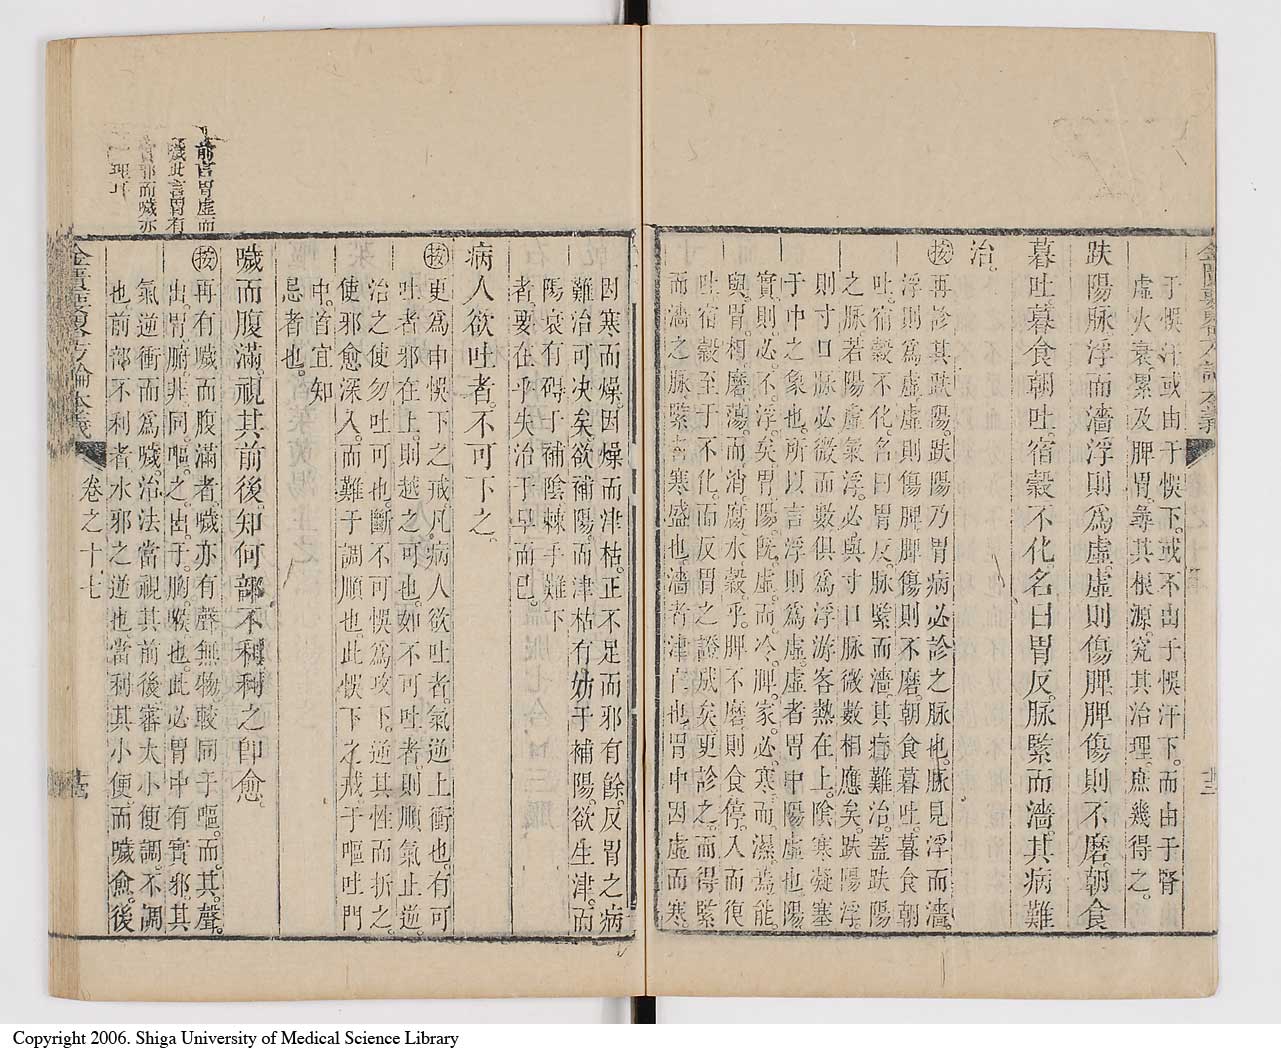 于悞汗或由于悞下。或不由于悞汗下。而由于腎
虛火衰。累及脾胃。尋其根源。究其治理。庶幾得之。
趺陽脈浮而濇浮則爲虛。虛則傷脾脾傷則不磨。朝食
暮吐暮食朝吐宿穀不化名曰胃反。脈緊而濇。其病難
治。
按再診其趺陽趺陽乃胃病必診之脈也。脈見浮而濇。
浮則爲虛虛則傷脾脾傷則不磨。朝食暮吐。暮食朝
吐。宿穀不化。名曰胃反。脈緊而濇。其病難治。蓋趺陽
之脈若陽虛氣浮。必與寸口脈微數相應矣。趺陽浮。
則寸口脈必微而數俱爲浮游客熱在上。陰寒凝塞
于中之象也。所以言浮則爲虛。虛者胃中陽虛也。陽
實則必不浮矣。胃陽既虛。而冷。脾家必寒而濕。焉能
與胃。相磨蕩。而消腐水穀乎。脾不磨則食停。入而復
吐。宿穀至于不化。而反胃之證成矣。更診之。而得緊
而濇之脈。緊者寒盛也。濇者津亡也。胃中因虛而寒。
因寒而燥。因燥而津枯。正不足而邪有餘。反胃之病
難治可決矣。欲補陽。而津枯有妨于補陽。欲生津。而
陽衰有碍于補陰。棘手難下
者。要在乎失治于早而已。
病人欲吐者。不可下之。
按更爲申悞下之戒。凡病人欲吐者。氣逆上衝也。有可
吐者。邪在上。則越之可也。如不可吐者。則順氣止逆。
治之使勿吐可也。斷不可悞爲攻下。逆其性而折之。
使邪愈深入。而難于調順也。此悞下之戒于嘔吐門
中。首宜知
忌者也。
噦而腹滿。視其前後。知何部不利利之即愈。
按再有噦而腹滿者噦亦有聲無物較同于嘔。而其聲。
出胃腑非同。嘔。之出。于。胸。喉。也。此必胃中有實邪。其
氣逆衝而爲噦。治法當視其前後審大小便調。不調
也。前部不利者水邪之逆也。當利其小便。而噦愈。後
前言胃虛而
噦此言胃有
實邪而噦亦
卷之十七